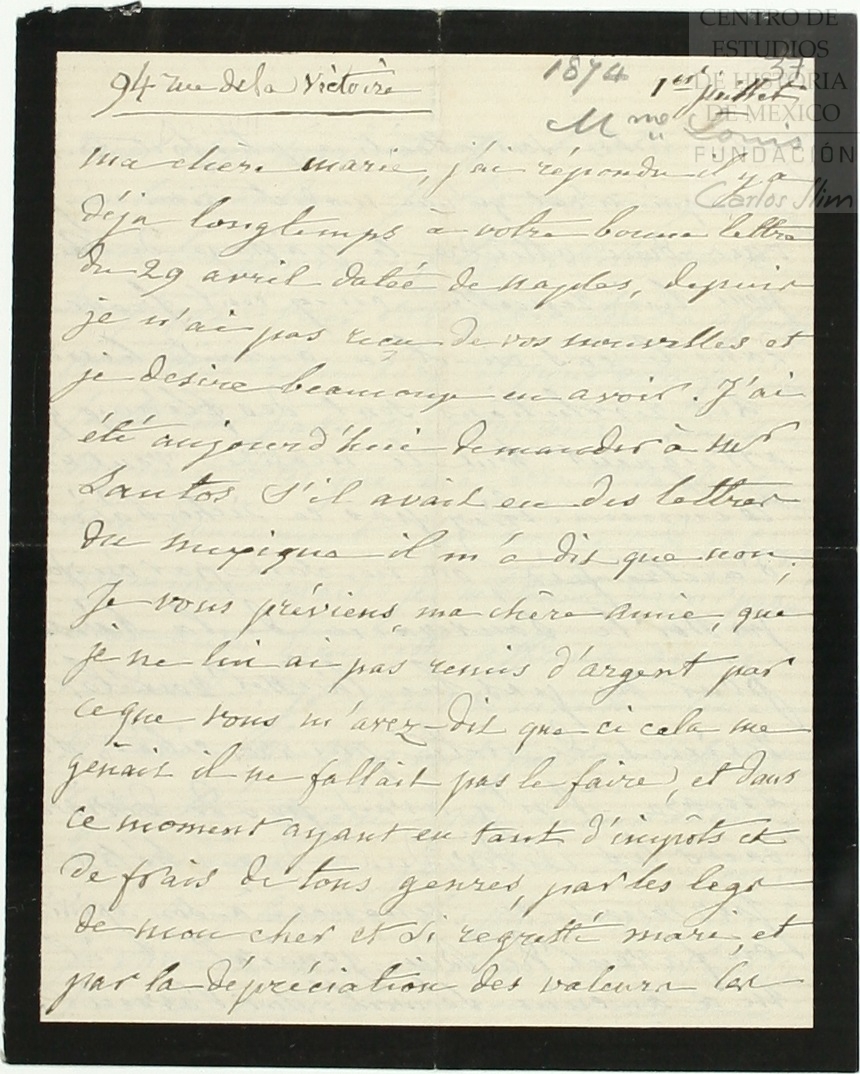 CENTRO DE
ESTUDIOS
DE HISTORIA
DE MEXICO
FUNDACIÓN
Carlos Slim
37
94 rue de la Victoire
1874 1er juillet
Mme Louis
ma chere marie, j'ai répondu il y a
déja longtemps à votre bonne lettre
du 29 avril datée de naples, depuis
je n'ai pas reçu de vos nouvelles et
je desire beaucoup en avoir. J'ai
été aujourd'hui demander à Mr
Santos s'il avait eu des lettres
du mexique il m'a dit que non.
Je vous préviens, ma chère amie, que
je ne lui ai pas remis d'argent par
ceque vous m'avez dit que ci cela me
gênait il ne fallait pas le faire, et dans
ce moment ayant eu tant d'impôts et
de frais de tous genres, par les legs
de mon cher et si regretté mari, et
par la dépréciation des valeurs